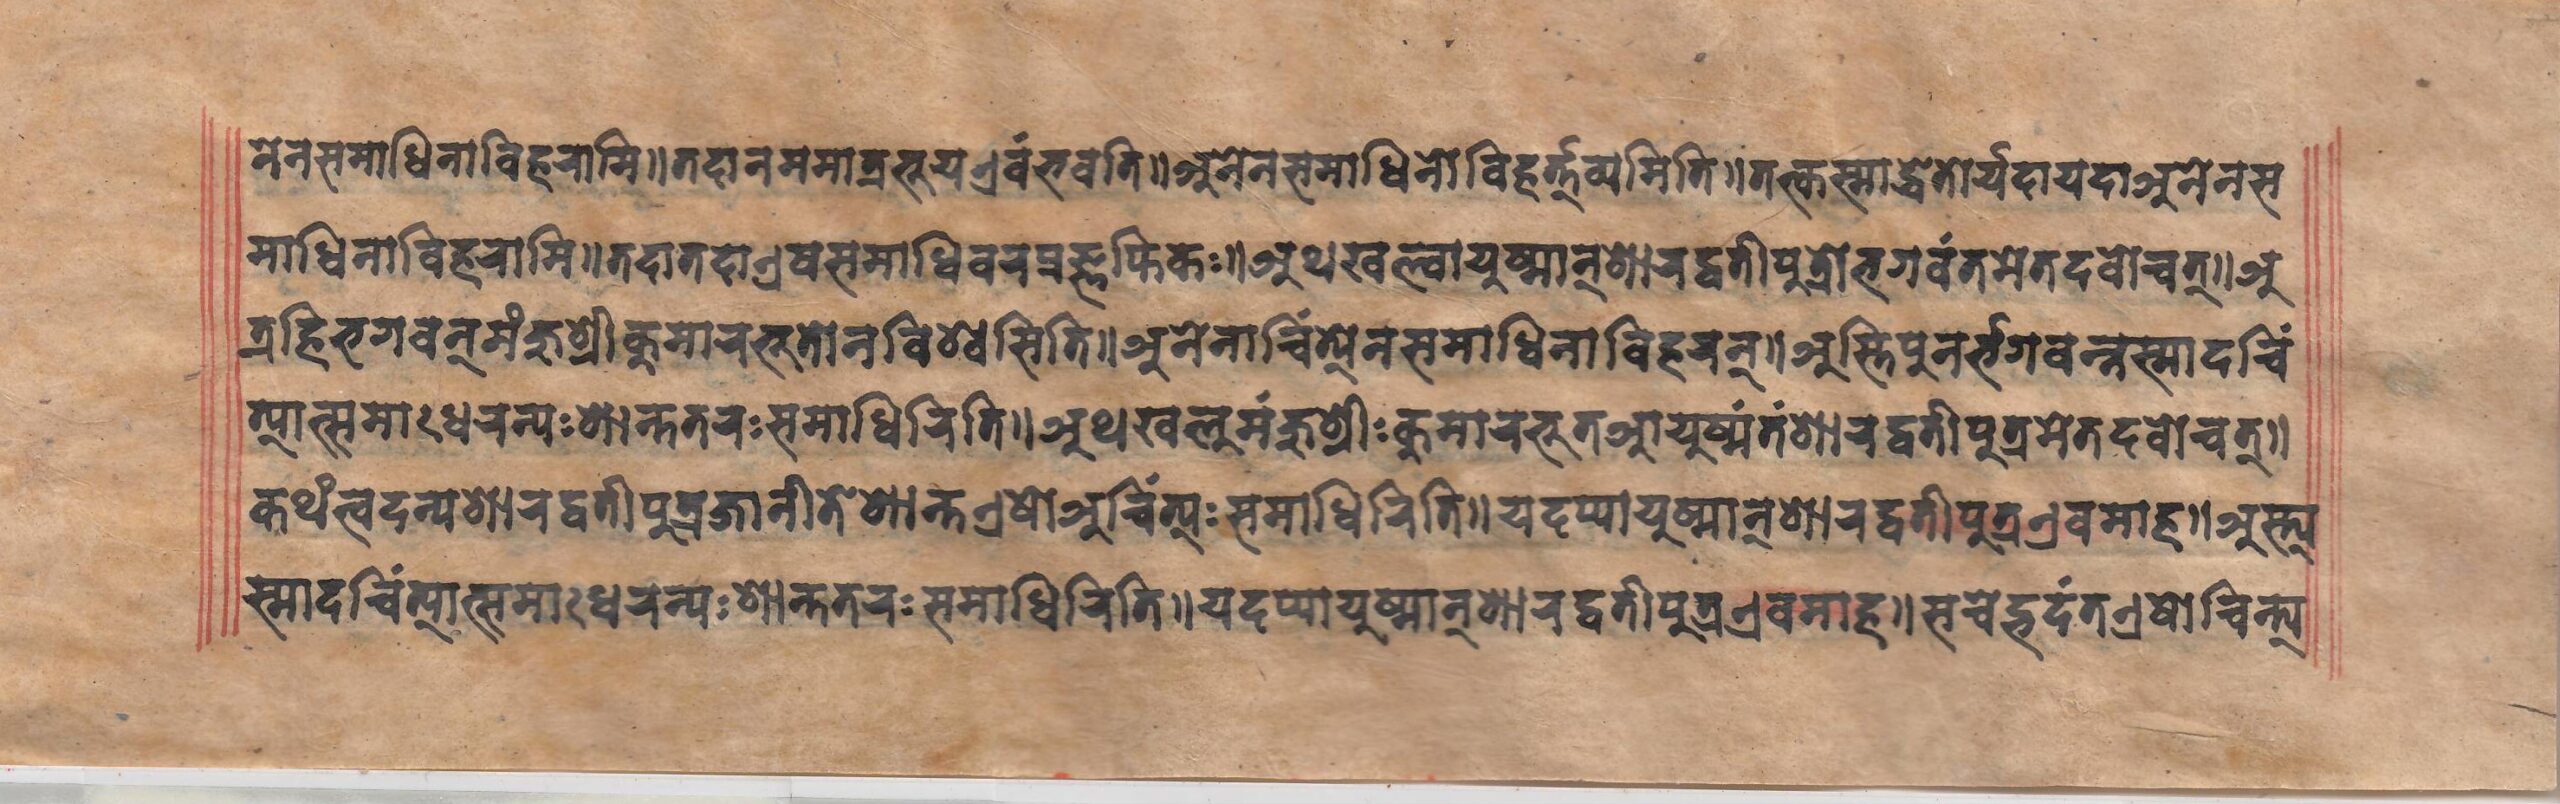 नेनसमाधिनाविहरामि॥तदानममात्रभूयएवंभवति॥अनेनसमाधिनोविहर्त्तव्यमिति॥तत्कस्माद्धेतोर्यदायदाअनेनस
माधिनाविहरामि॥तदातदाएषसमाधिवरप्रज्ञप्तिकः॥अथखल्वायुष्मान्शारद्वतीपुत्रोभगवंतमेतदवोचत्॥अ
त्रहिभगवन्मंजुश्रीकुमारभूतोनविश्वसिति॥अनेनाचिंत्येनसमाधिनाविहरन्॥अस्तिपुनर्भगवन्नस्मादचिं
त्यात्समाऽधरन्यःशान्ततरःसमाधिरिति॥अथखलुमंजुश्रीःकुमारभूतआयुष्मंतंशारद्वतीपुत्रमेतदवोचत्॥
कथंत्वदन्यशारद्वतीपुत्रजानीतेशान्तएषोअचिंत्यःसमाधिरिति॥यदप्यायुष्मान्शारद्वतीपुत्रएवमाह॥अस्त्य
स्मादचिंत्यात्समाऽधरन्यःशान्ततरःसमाधिरिति॥यदप्यायुष्मान्शारद्वतीपुत्रएवमाह॥सचेद्भदंतएषोचिन्त्य